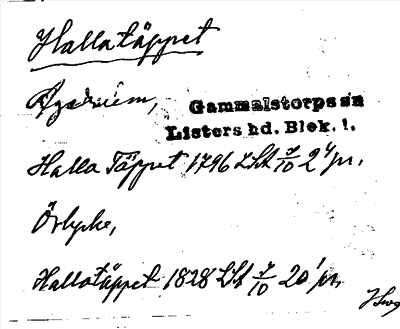 Hallatäppet
Ägarnem,
Gammalstorps sn
Listers hd. Blek. l.
Halla Täppet 1796 LSA 7/10 24 pr.
Örlycke,
Hallatäppet 1828 LSA 7/10 20' pr.